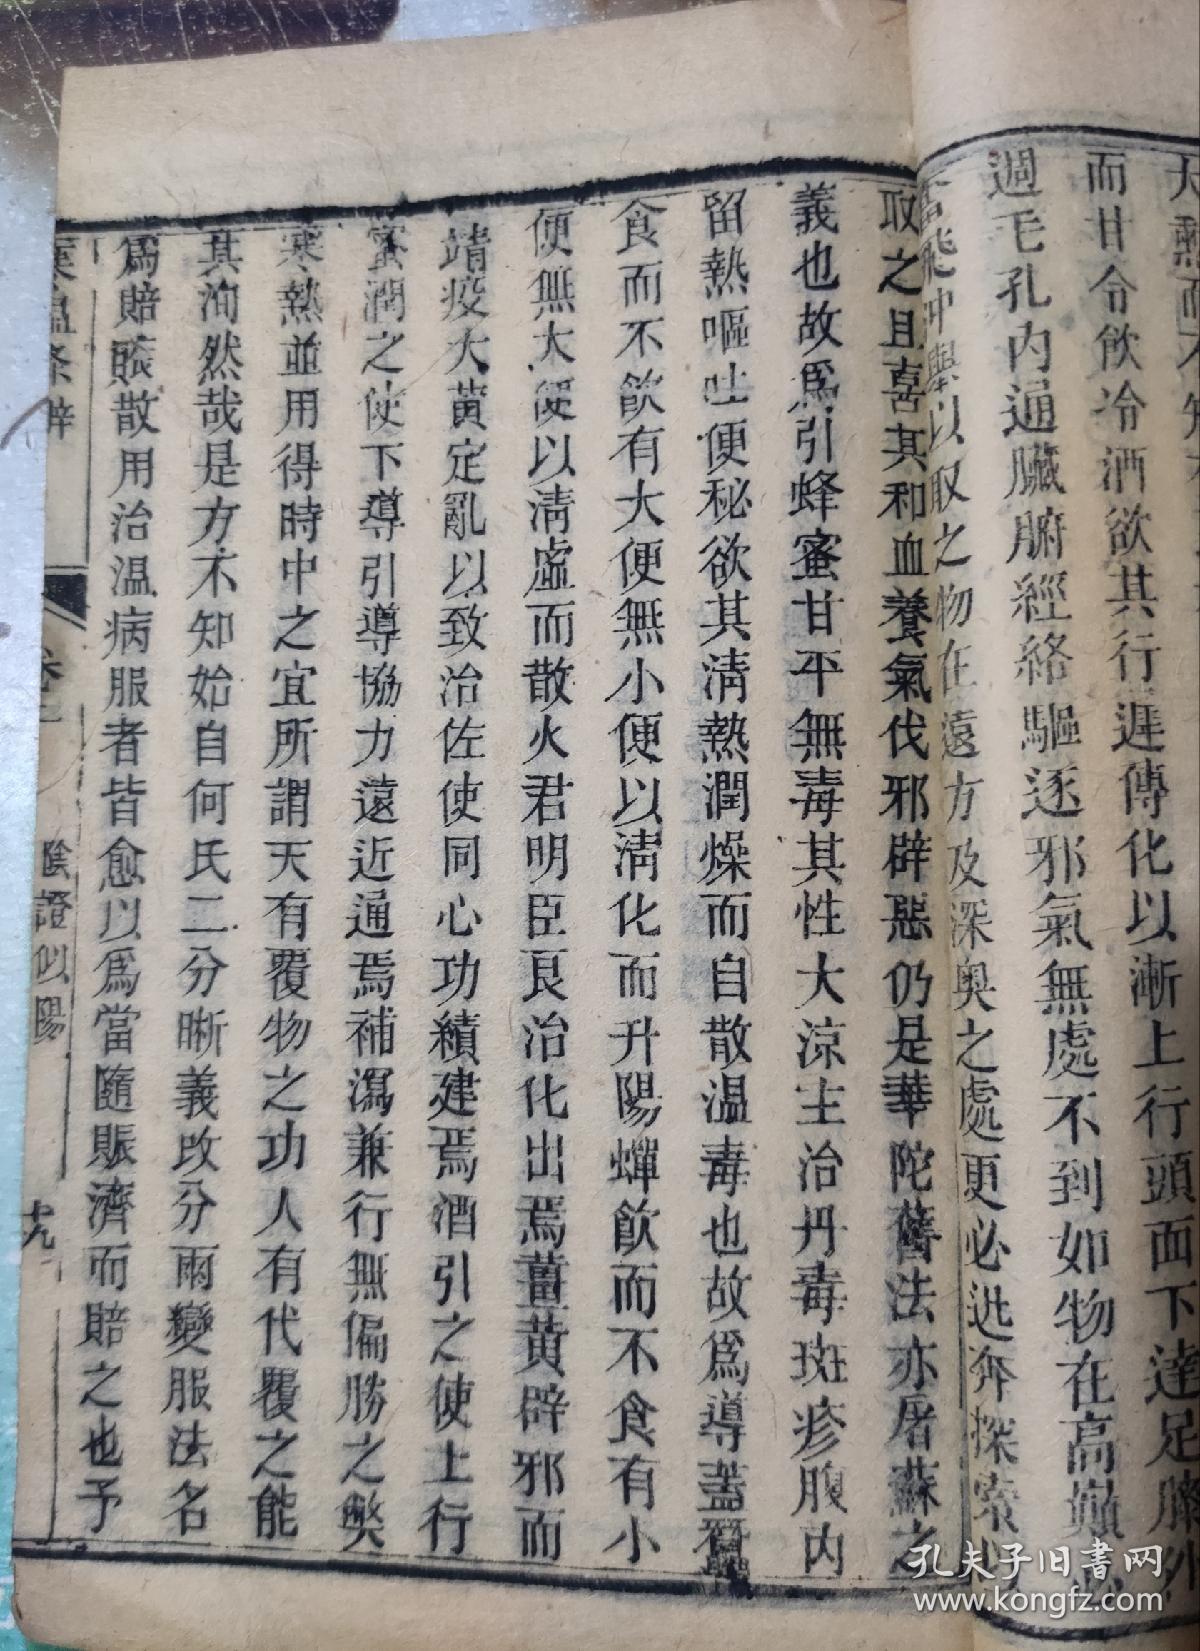 大熱而不
而甘令飲冷酒欲其行遲傳化以漸上行頭面下達足膝外
週毛孔內通臟腑經絡驅逐邪氣無處不到如物在高巔必
奮飛冲舉以取之物在遠方及深奧之處更必迅奔探索以
取之且喜其和血養氣伐邪辟惡仍是華陀舊法亦屠蘇之
義也故爲引蜂蜜甘平無毒其性大涼主治丹毒斑疹腹內
留熱嘔吐便秘欲其清熱潤燥而自散溫毒也故爲導蓋蠶
食而不飲有大便無小便以清化而升陽蟬飲而不食有小
便無大便以清虛而散火君明臣良治化出焉薑黃辟邪而
靖疫大黃定亂以致治佐使同心功績建焉酒引之使上行
蜜潤之使下導引導協力遠近通焉補瀉兼行無偏勝之弊
寒熱並用得時中之宜所謂天有覆物之功人有代覆之能
其洵然哉是方不知始自何氏二分晰義改分兩變服法名
爲賠賑散用治溫病服者皆愈以爲當隨賑濟而賠之也予
寒溫條辨
陰證似陽
十九
孔夫子旧书网
www.kongfz.com